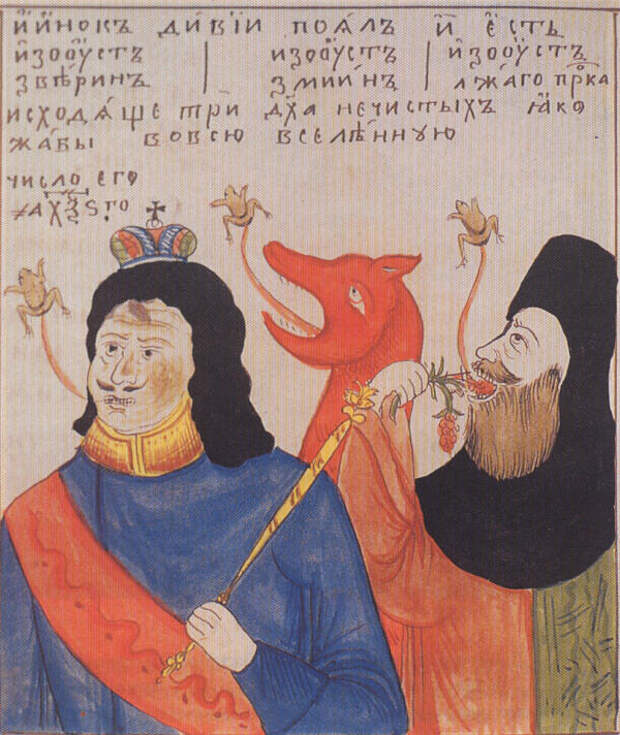 и҆и҆нокъ дивїи поѧ́лъ и҆ є҆сть
и҆зоо́устъ | и҆зоо́устъ | и҆зоо́устъ
звѣ́ринъ | змїи́нъ | лжаго прⷪ҇ка
исходѧ́ще три дх҃а нечистыхъ ꙗ҆ко
жа́бы вовсю вселе́нную
число єго
҂ахѯѕ го